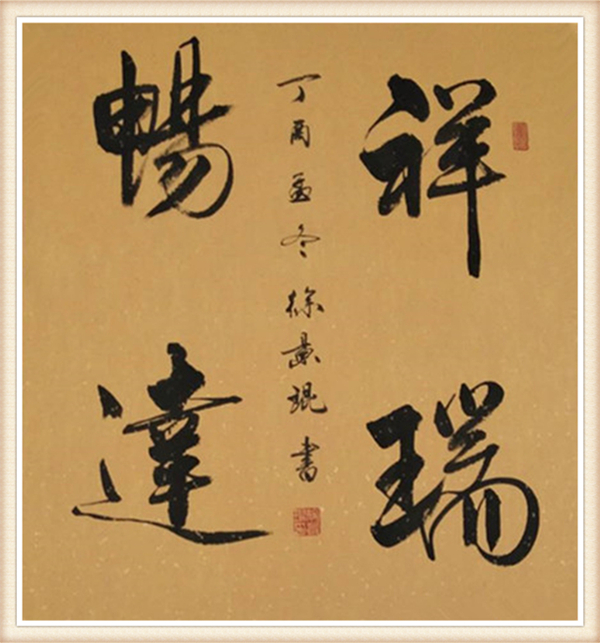 祥瑞
丁酉孟冬徐景琨書
暢達